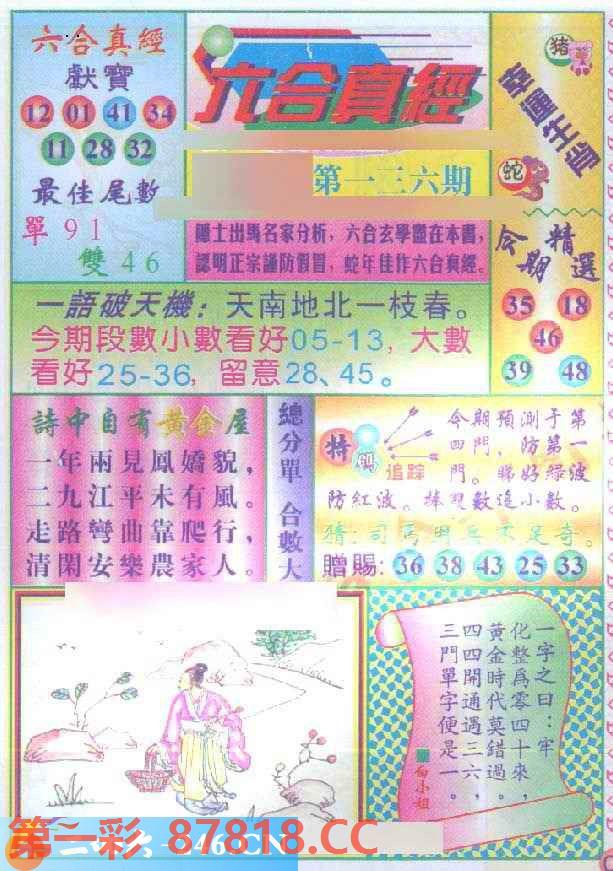 六合真經
獻寶
12 01 41 34
11 28 32
最佳尾數
單91
雙46
六合真經
第一三六期
隱士出馬名家分析，六合玄學盡在本書，
認明正宗謹防假冒，蛇年佳作六合真經。
豬
蛇
今期精選
35 18
46
39 48
一語破天機：天南地北一枝春。
今期段數小數看好05-13，大數
看好25-36，留意28、45。
詩中自有黃金屋
一年兩見鳳嬌貌，
二九江平未有風。
走路彎曲靠爬行，
清閑安樂農家人。
總分單 合數大
特碼
追踪
今期預測于第
四門，防第一
門。睇好綠波
防紅波。捧雙數追小數。
贈賜：36 38 43 25 33
一字之曰：牢
化整為零四十來，
黃金時代莫錯過。
四四開通遇三六，
三門單字便是一。
白小姐
第一彩 87818.CC